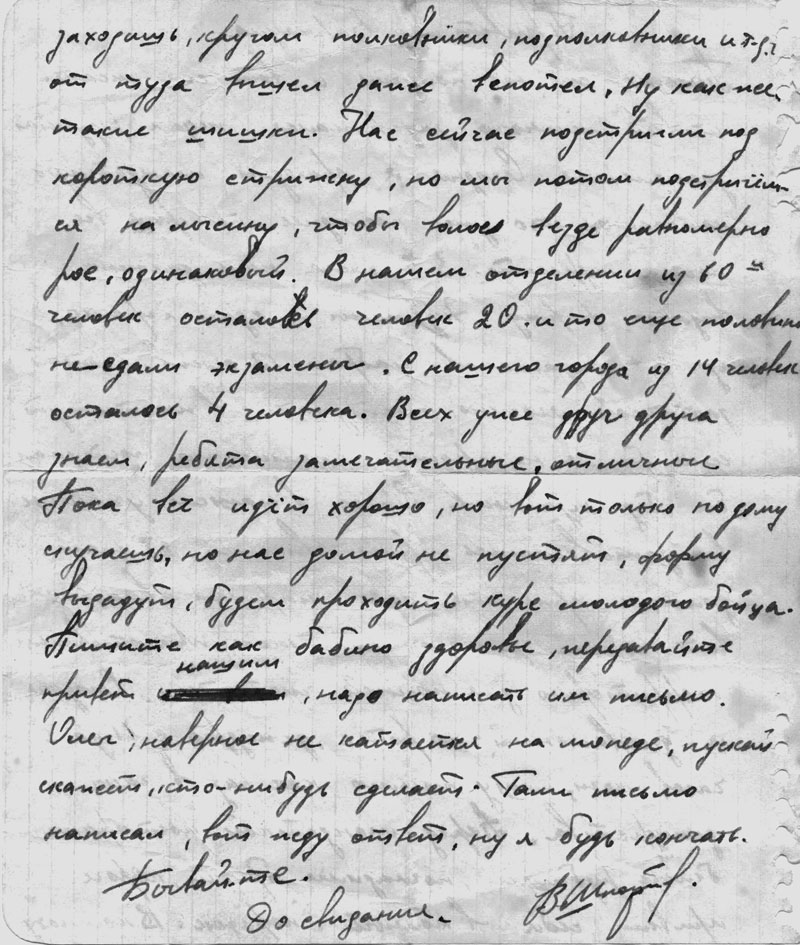 заходишь, кругом полковники, подполковники и т.д.,
от туда вышел даже вспотел, Ну как же
такие шишки. Нас сейчас подстригли под
короткую стрижку, но мы потом подстриглём-
ся на лысину, чтобы волос везде равномерно
рос, одинаковый. В нашем отделении из 60и
человек осталось человек 20. и то еще половина
не сдали экзамены. С нашего города из 14 человек
осталось 4 человека. Всех уже друг друга
знаем, ребята замечательные, отличные
Пока всё идёт хорошо, но вот только по дому
скучаешь, но нас домой не пустят, форму
выдадут, будем проходить курс молодого бойца.
Пишите как бабино здоровье, передавайте
привет нашим, надо написать им письмо.
Олег, наверное не катается на мопеде, пускай
скажет, кто-нибудь сделает. Тани письмо
написал, вот жду ответ, ну я будь кончать.
Бывайте.
До свидания.